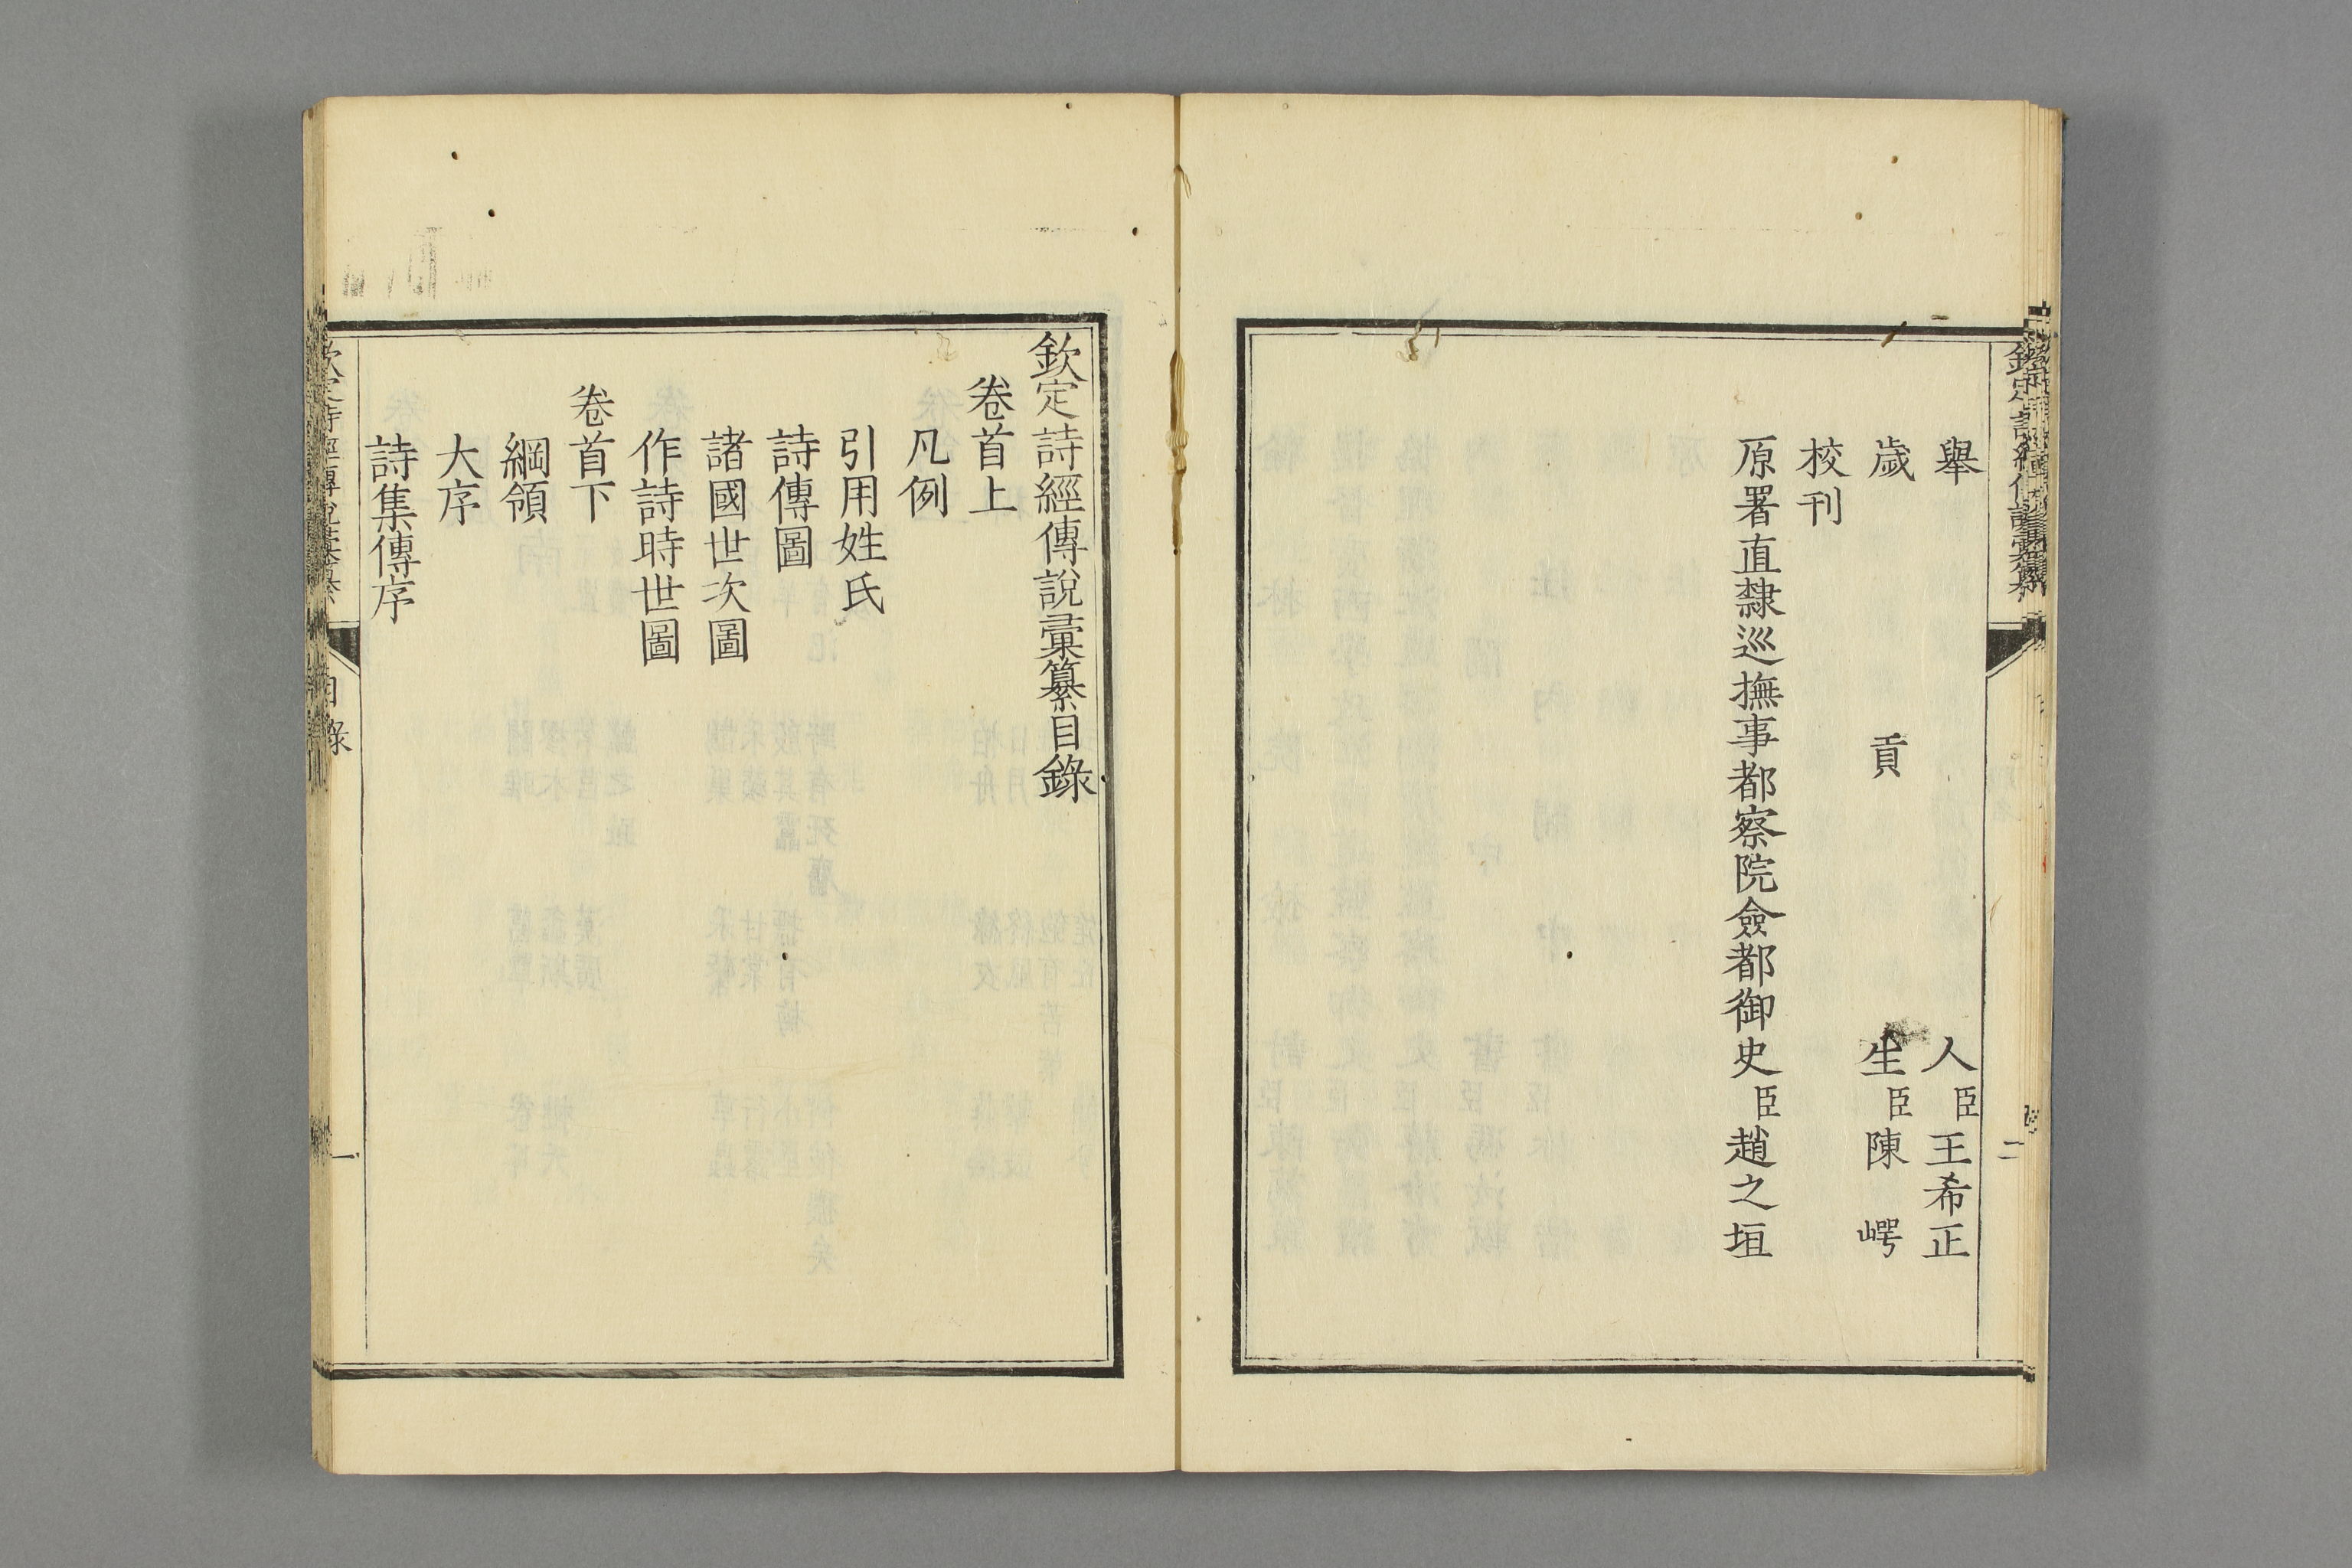 舉人臣王希正
歲貢生臣陳崿
校刊
原署直隸巡撫事都察院僉都御史臣趙之垣
二
欽定詩經傳說彙纂目錄
卷首上
凡例
引用姓氏
詩傳圖
諸國世次圖
作詩時世圖
卷首下
綱領
大序
詩集傳序
欽定詩經傳說彙纂
目錄
一